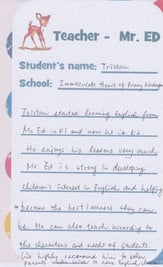 Teacher - Mr. ED
Student's name: Tristan
School: Immaculate Heart of Mary Kinderg
Tristan started learning English from
Mr Ed in K1 and now he is K3.
He enjoys his lessons very much.
Mr Ed is strong in developing
children's interest in English and helping
become the best learners they can
be. He can also teach according to
the characters and needs of students.
We highly recommend him to other
parents